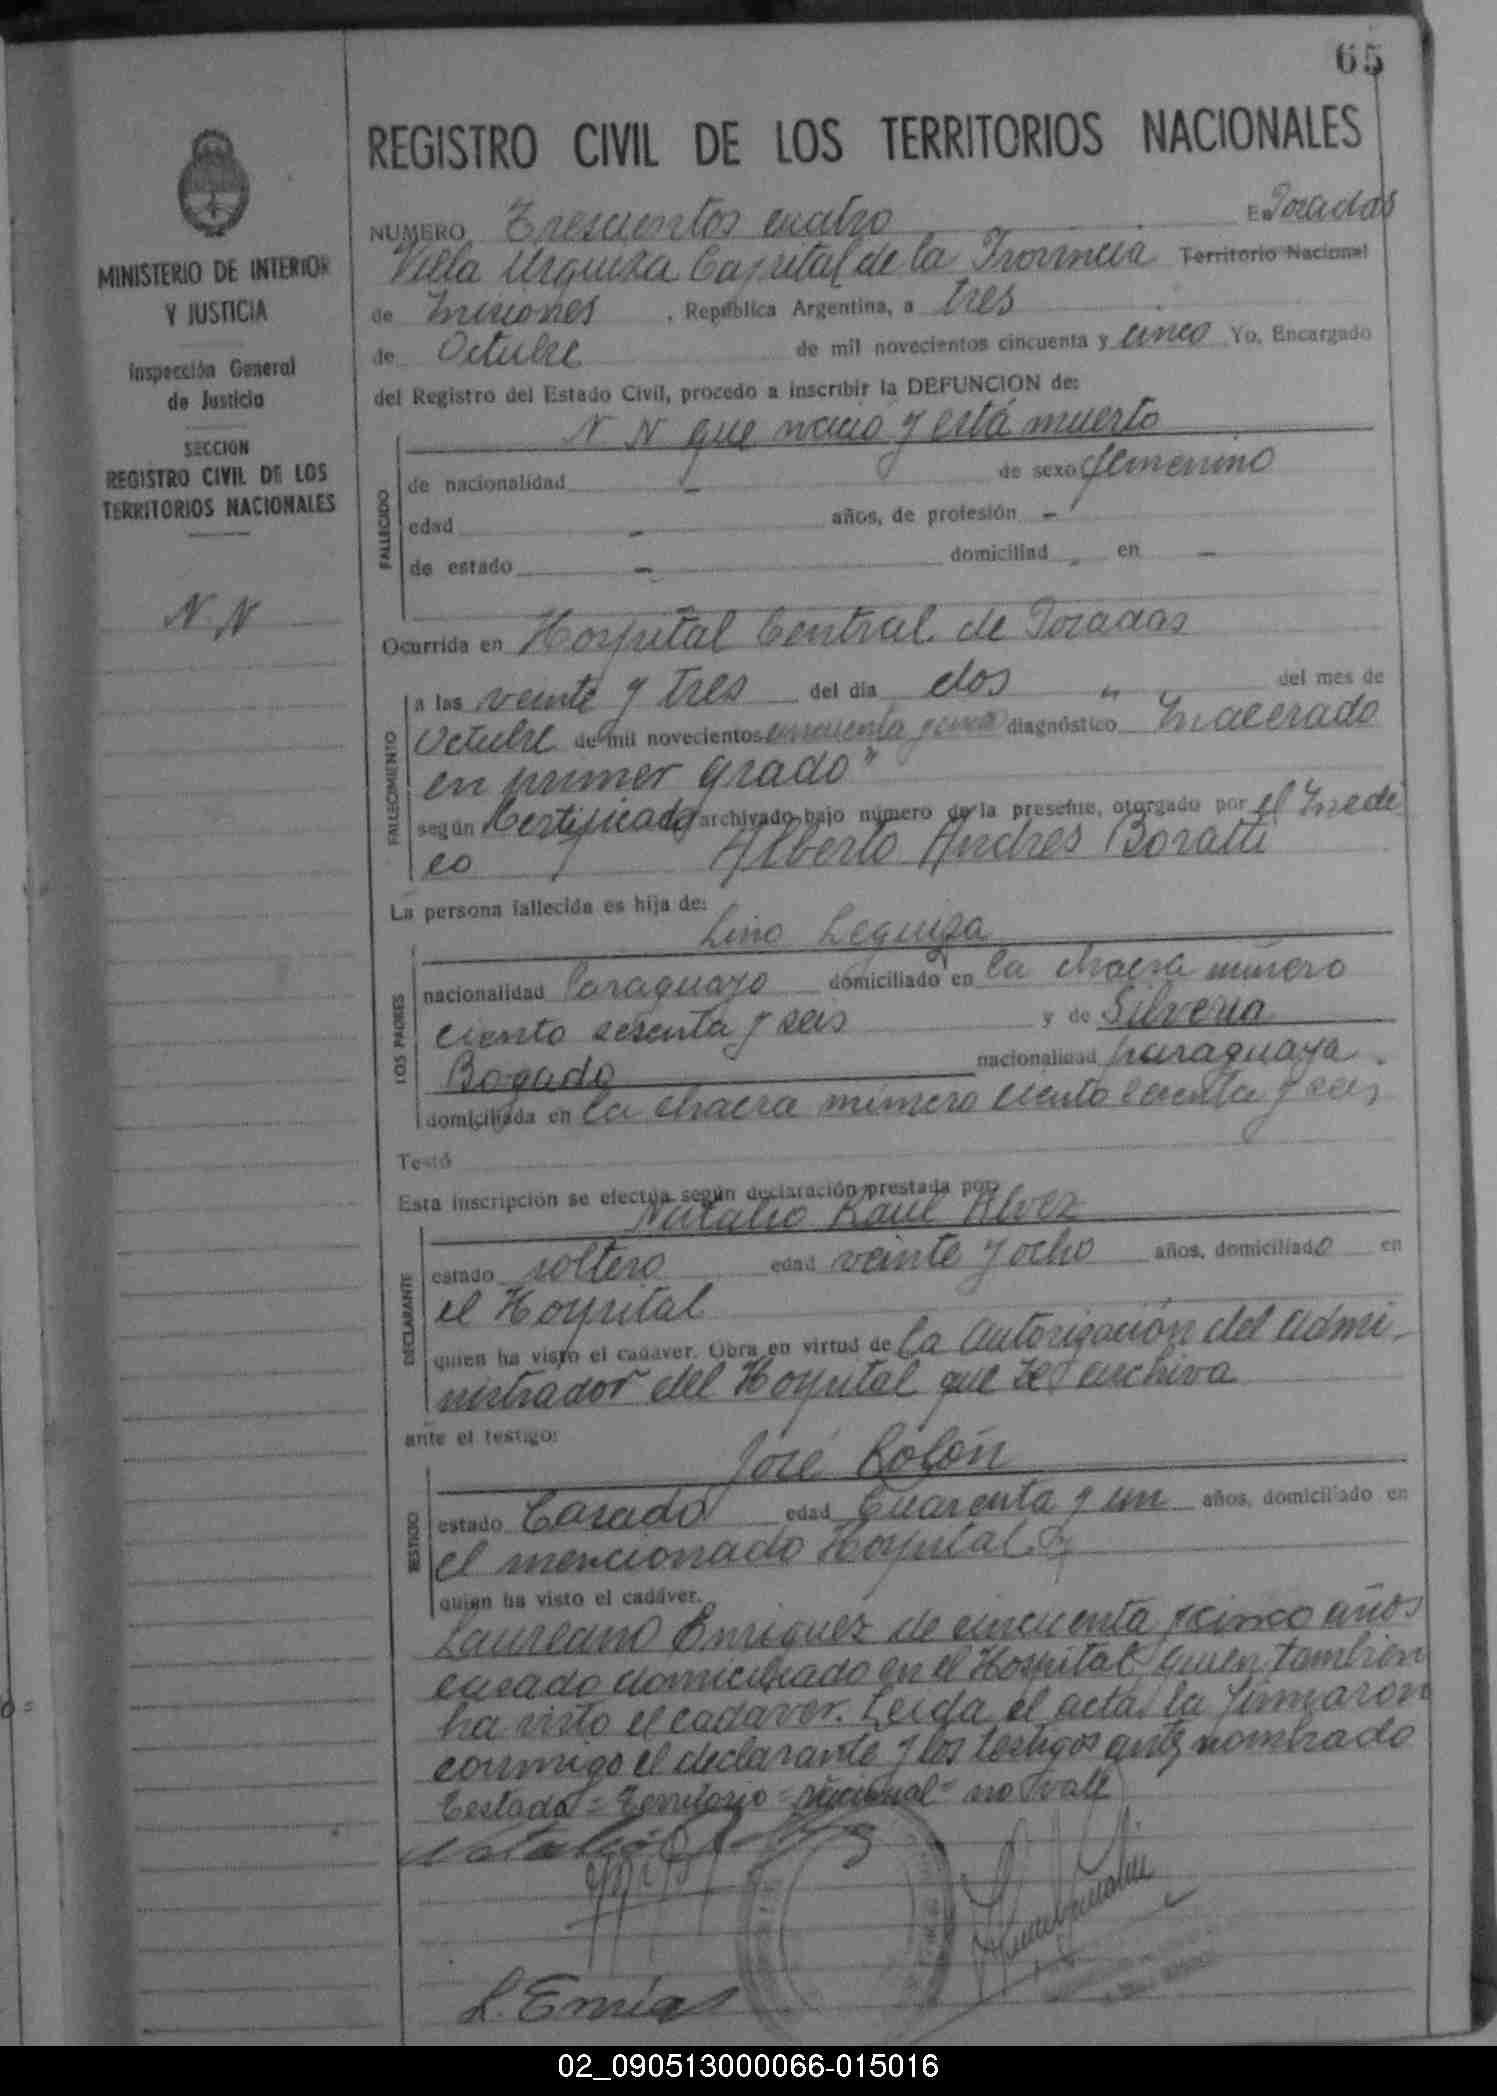 65
REGISTRO CIVIL DE LOS TERRITORIOS NACIONALES
MINISTERIO DE INTERIOR
Y JUSTICIA
Inspección General
de Justicia
SECCION
REGISTRO CIVIL DE LOS
TERRITORIOS NACIONALES
N. N
NUMERO Trescientos cuatro En Posadas
Villa Urquiza Capital de la Provincia Territorio Nacional
de Misiones, República Argentina, a tres
de Octubre de mil novecientos cincuenta y cinco Yo, Encargado
del Registro del Estado Civil, procedo a inscribir la DEFUNCION de:
N N que nació y está muerto
FALLECIDO
de nacionalidad - de sexo femenino
edad - años, de profesión -
de estado - domiciliad " en -
Ocurrida en Hospital Central de Posadas
FALLECIMIENTO
a las veinte y tres del día dos " del mes de
Octubre de mil novecientos cincuenta y cinco diagnóstico Macerado
en primer grado"
según Certificado archivado bajo número de la presente, otorgado por el Médi
co Alberto Andrés Boratti
La persona fallecida es hija de:
LOS PADRES
Lino Leguiza
nacionalidad Paraguayo domiciliado en la chacra número
ciento sesenta y seis y de Silveria
Bogado nacionalidad paraguaya.
domiciliada en la chacra número ciento sesenta y seis
Testó
Esta inscripción se efectúa según declaración prestada por:
DECLARANTE
Natalio Raul Alvez
estado soltero edad veinte y ocho años, domiciliado en
el Hospital
quien ha visto el cadáver. Obra en virtud de la autorización del admi-
nistrador del Hospital que se archiva
ante el testigo:
TESTIGO
José Rolón
estado Casado edad Cuarenta y un años, domiciliado en
el mencionado Hospital y
quien ha visto el cadáver.
Laureano Enriquez de cincuenta y cinco años
casado domiciliado en el Hospital quien tambien
ha visto el cadaver. Leida el acta la firmaron
conmigo el declarante y los testigos ante nombrado
Testado = Territorio = nacional = no vale
02_090513000066-015016